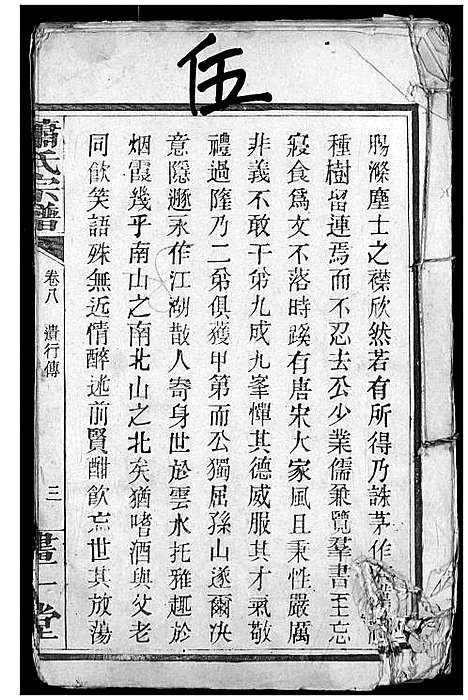 伍
腸滌塵士之襟欣然若有所得乃誅茅作
種樹留連焉而不忍去公少業儒兼覽羣書至忘
寢食爲文不落時蹊有唐宋大家風且秉性嚴厲
非義不敢干弟九成九峯憚其德威服其才氣敬
禮過隆乃二弟俱獲甲第而公獨屈孫山遂爾决
意隱遯永作江湖散人寄身世於雲水托雅趣於
烟霞幾乎南山之南北山之北矣猶嗜酒與父老
同飲笑語殊無近情醉述前賢酣飲忘世其放蕩
蕭氏宗譜
卷八 潰行傳
三
書一堂